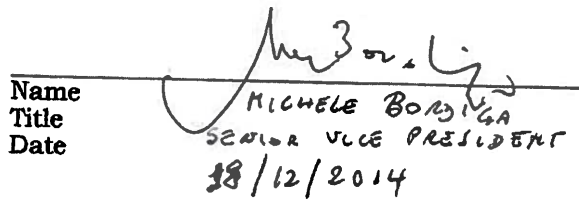 Name MICHELE BORDIGA
Title SENIOR VICE PRESIDENT
Date 18/12/2014